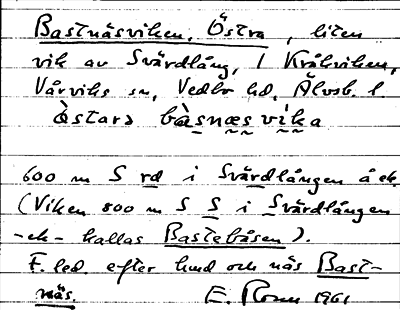 Bastnäsviken, Östra, liten
vik av Svärdlång, i Kråkviken,
Vårviks sn, Vedbo hd, Älvsb. l.
àstarə bàsnæs vika
600 m S rd i Svärdlången å ek.
(Viken 800 m S S i Svärdlången
-ek- kallas Bastebåsen).
F. led. efter hmd och näs Bast-
näs. 1961